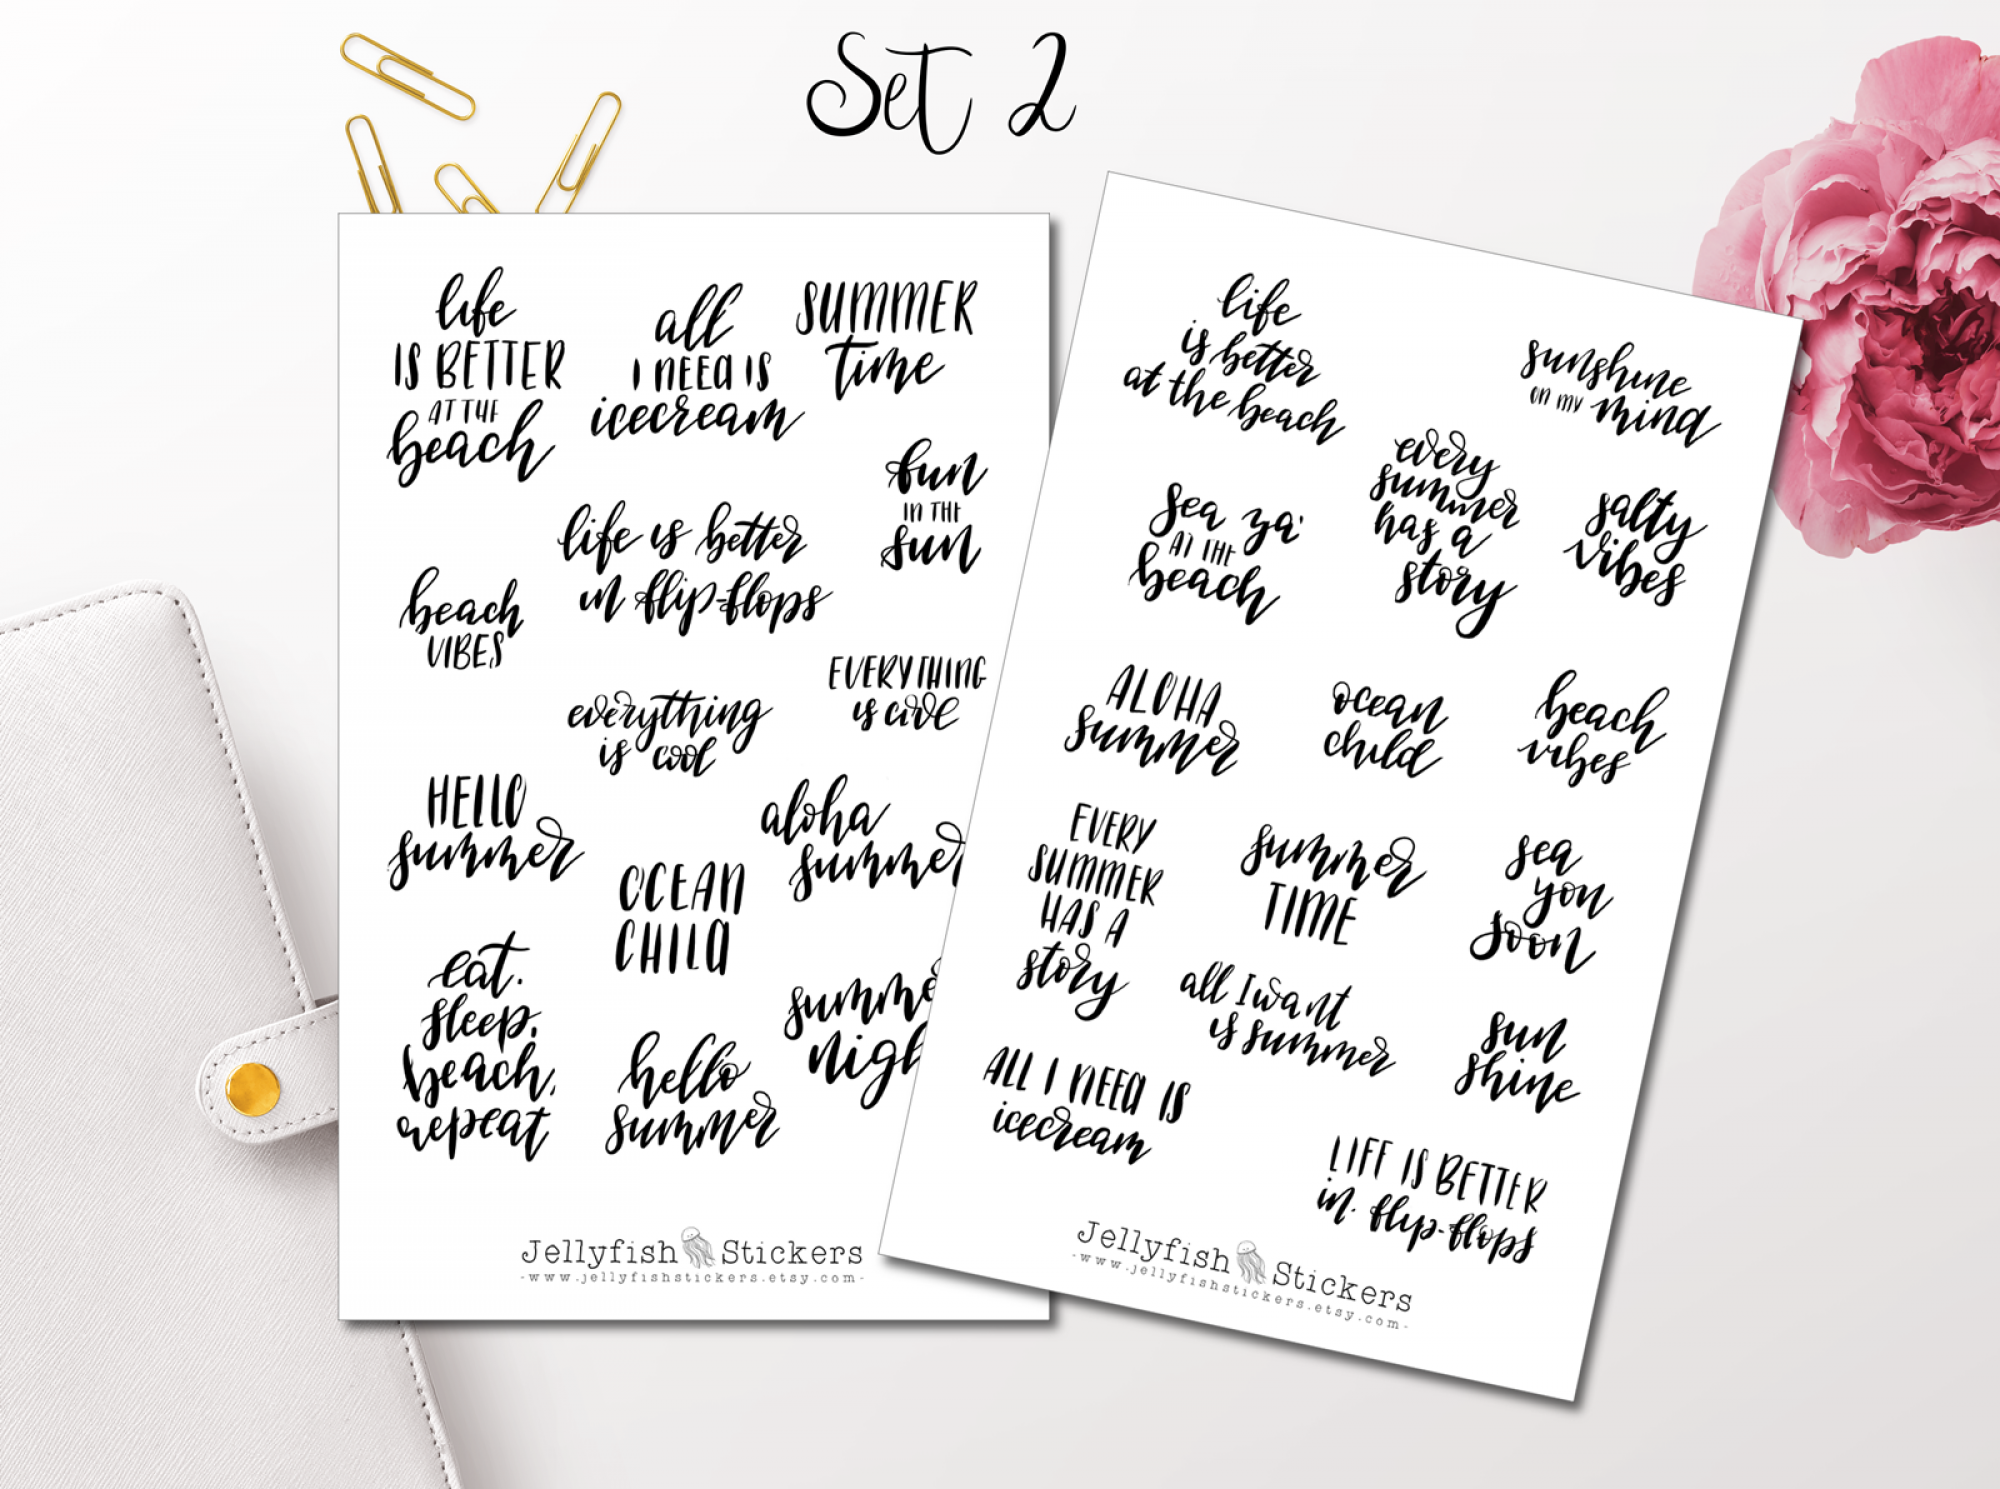 Set 2
life
IS BETTER
AT THE
beach
all
I NEED IS
icecream
SUMMER
time
fun
IN THE
sun
life is better
in flip-flops
beach
VIBES
EVERYTHING
is cool
everything
is cool
HELLO
summer
aloha
summer
OCEAN
CHILD
eat.
sleep.
beach.
repeat
hello
summer
summe
nigh
Jellyfish Stickers
-www.jellyfishstickers.etsy.com-
life
is better
at the beach
sunshine
on my mind
every
summer
has a
story
sea ya'
AT THE
beach
salty
vibes
ALOHA
summer
ocean
child
beach
vibes
EVERY
SUMMER
HAS A
story
summer
TIME
sea
you
soon
all I want
is summer
sun
shine
ALL I NEED IS
icecream
LIFE IS BETTER
in flip-flops
Jellyfish Stickers
-www.jellyfishstickers.etsy.com-